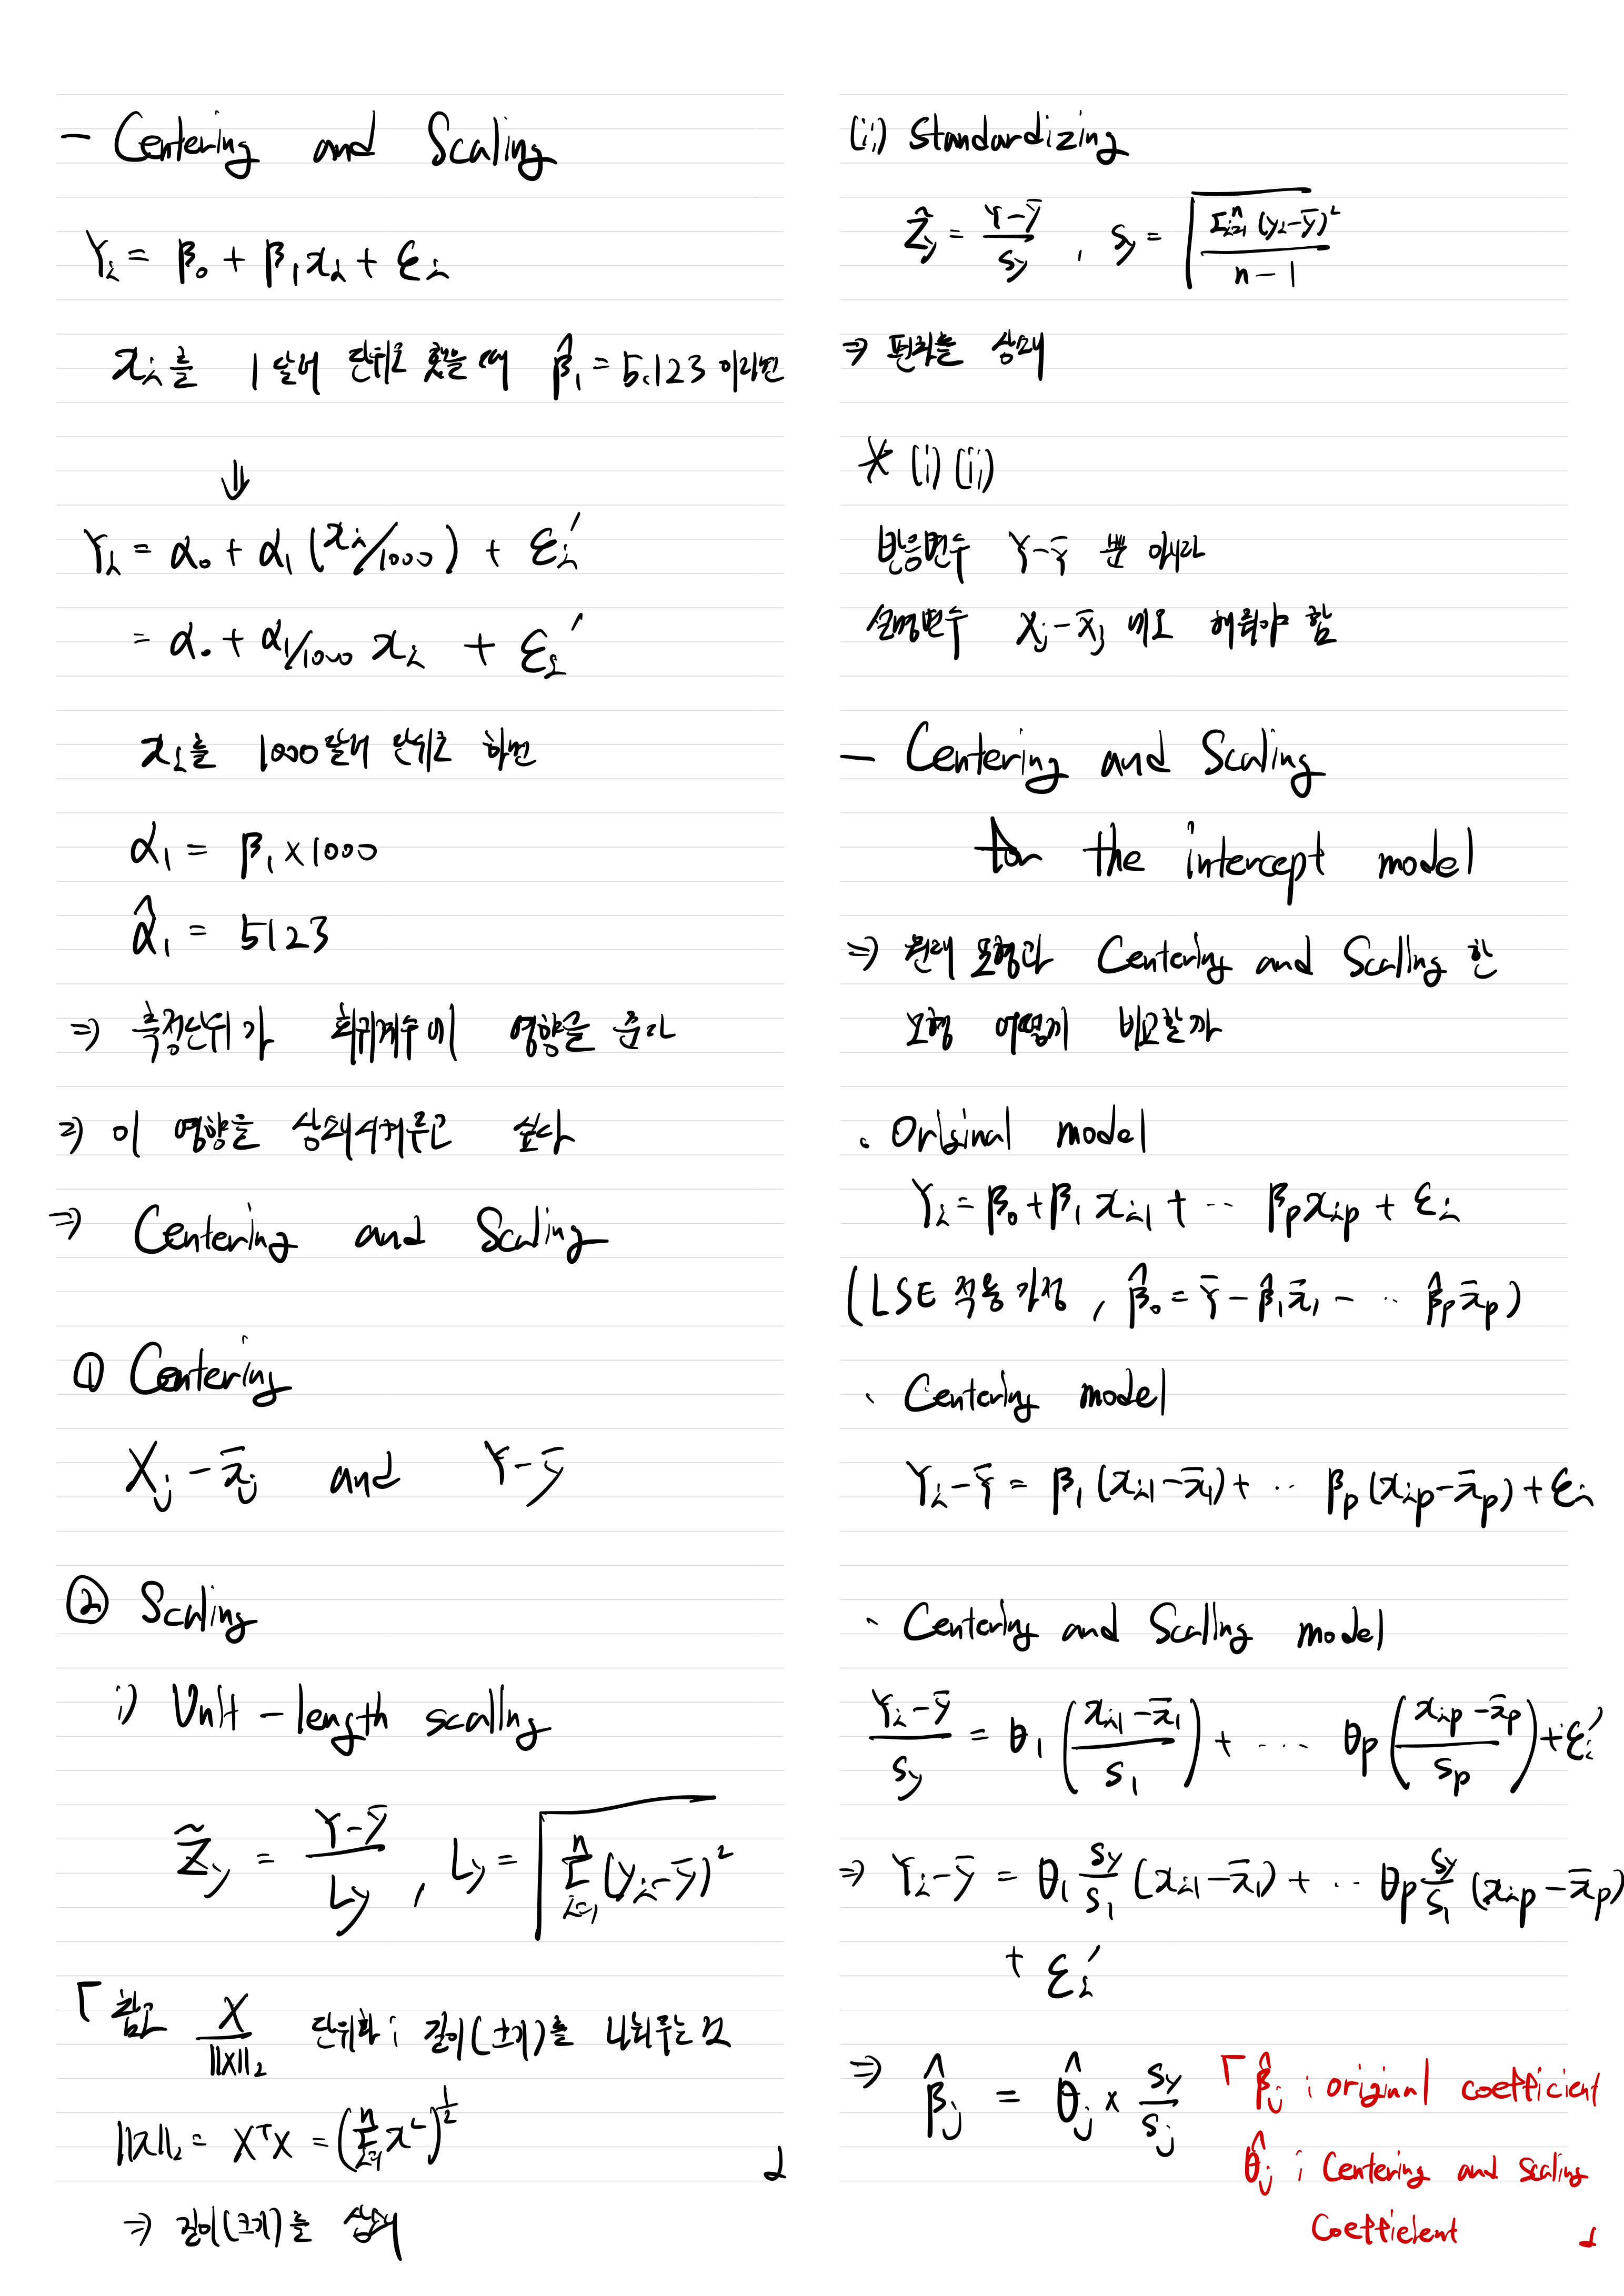 - Centering and Scaling
Yᵢ = β₀ + β₁xᵢ + εᵢ
xᵢ를 1달러 단위로 했을 때 β̂₁ = 5.123 이라면
⇓
Yᵢ = α₀ + α₁(xᵢ/1000) + εᵢ′
= α₀ + α₁/1000 xᵢ + εᵢ′
xᵢ를 1000달러 단위로 하면
α₁ = β₁ × 1000
α̂₁ = 5123
⇒ 측정단위가 회귀계수에 영향을 준다
⇒ 이 영향을 상쇄시켜주고 싶다
⇒ Centering and Scaling
① Centering
Xⱼ - x̄ⱼ and Y - ȳ
② Scaling
i) Unit - length scaling
Z̃y = (Y - ȳ)/Ly , Ly = √(Σᵢ₌₁ⁿ (yᵢ - ȳ)²)
「참고 X/||X||₂ 단위화 ; 길이(크기)를 나눠주는 것
||x||₂ = XᵀX = (Σᵢ₌₁ⁿ x²)^(1/2) 」
⇒ 길이(크기)를 상쇄
(ii) Standardizing
Ẑy = (Y - ȳ)/sy , sy = √(Σᵢ₌₁ⁿ (yᵢ - ȳ)² / (n - 1))
⇒ 편차를 상쇄
* (i) (ii)
반응변수 Y - Ȳ 뿐 아니라
설명변수 Xⱼ - x̄ⱼ 에도 해줘야 함
- Centering and Scaling
for the intercept model
⇒ 원래 모형과 Centering and Scaling 한
모형 어떻게 비교할까
. Original model
Yᵢ = β₀ + β₁xᵢ₁ + ·· βₚxᵢₚ + εᵢ
(LSE 적용 가정 , β̂₀ = Ȳ - β̂₁x̄₁ - ·· β̂ₚx̄ₚ)
. Centering model
Yᵢ - Ȳ = β₁(xᵢ₁ - x̄₁) + ·· βₚ(xᵢₚ - x̄ₚ) + εᵢ
. Centering and Scaling model
(Yᵢ - ȳ)/sy = θ₁((xᵢ₁ - x̄₁)/s₁) + ··· θₚ((xᵢₚ - x̄ₚ)/sₚ) + εᵢ′
⇒ Yᵢ - ȳ = θ₁ sy/s₁ (xᵢ₁ - x̄₁) + ·· θₚ sy/s₁ (xᵢₚ - x̄ₚ)
+ εᵢ′
⇒ β̂ⱼ = θ̂ⱼ × sy/sⱼ 「β̂ⱼ ; original coefficient
θ̂ⱼ ; Centering and scaling
Coefficient 」